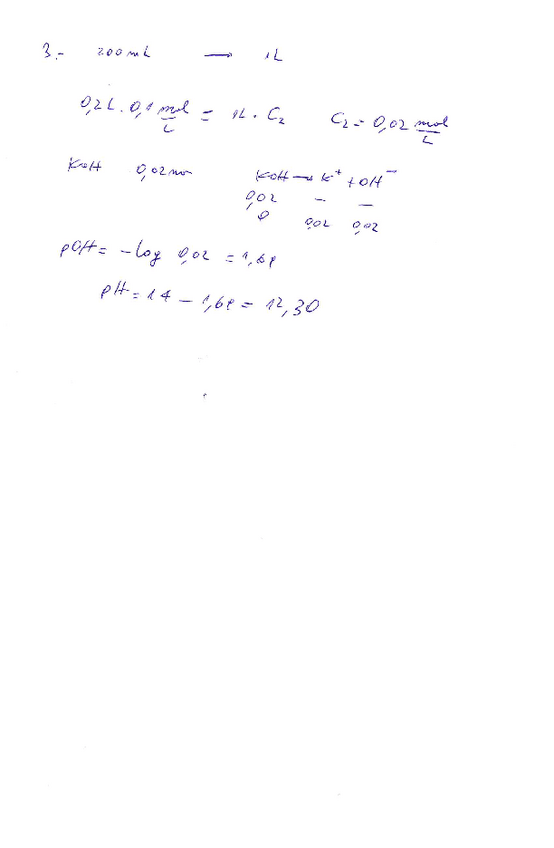 3.- 200 mL → 1L
0,2 L . 0,1 mol/L = 1L . C₂ C₂ = 0,02 mol/L
KOH 0,02 KOH → K⁺ + OH⁻
0,02 – –
0 0,02 0,02
pOH = -log 0,02 = 1,69
pH = 14 - 1,69 = 12,30